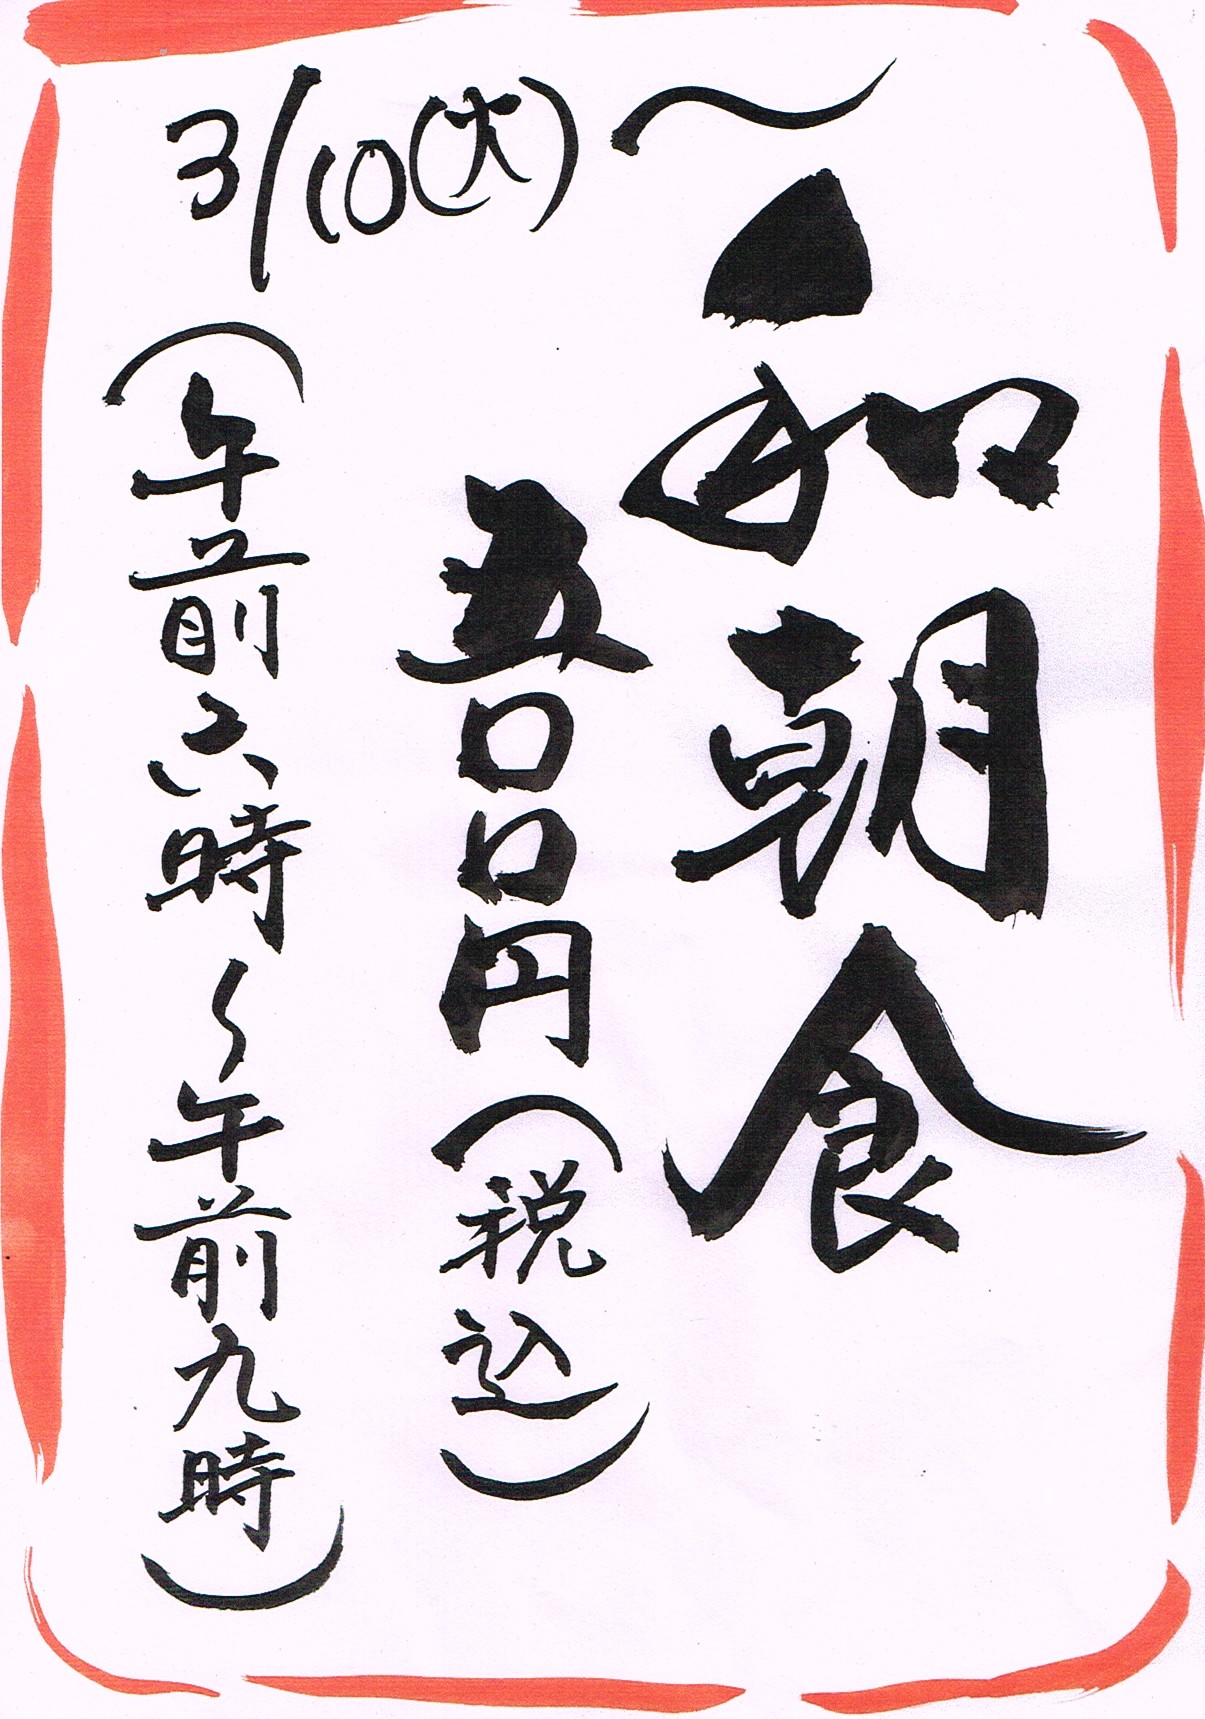 3/10(火)〜
和朝食
五〇〇円(税込)
(午前六時〜午前九時)